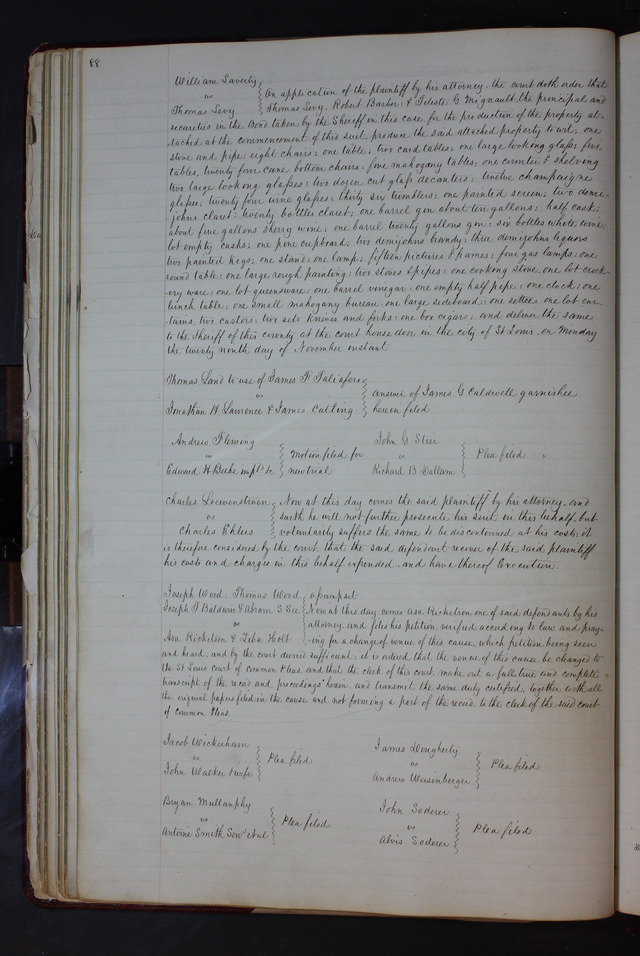 88
William Laverty
vs
Thomas Levy
On application of the plaintiff by his attorney, the court doth order that
Thomas Levy, Robert Barber, & Celeste G Mignault the principal and
securities in the Bond taken by the Sheriff in this case for the production of the property at-
tached at the commencement of this suit, produce the said attached property to wit; one
stove and pipe; eight chairs; one table; two card tables; one large looking glass; five
tables, twenty four cane bottom chairs; five mahogany tables; one counter & shelving
two large looking glasses; two dozen cut glass decanters; twelve champaigne
glasses; twenty four wine glasses; thirty six tumblers; one painted screen; two demi-
johns claret; twenty bottles claret; one barrel gin about ten gallons; half cask;
about five gallons sherry wine; one barrel twenty gallons gin; six bottles white wine;
lot empty casks; one pine cupboard; two demijohns brandy; three demijohns liquors
two painted kegs; one stand; one lamp; fifteen pictures & frames; four gas lamps; one
round table; one large rough painting; two stoves & pipes; one cooking stove, one lot crock-
ery ware; one lot queensware; one barrel vinegar; one empty half pipe; one clock; one
lunch table; one small mahogany bureau; one large sideboard; one settee; one lot cur-
tains, two castors; two sets knives and forks; one box cigars; and deliver the same
to the Sheriff of this county at the court house door in the city of St Louis, on Monday
the twenty ninth day of November instant
Thomas Land to use of James F Taliafero
vs
Jonathan H Lawrence & James Catling
answer of James G Caldwell garnishee
herein filed
Andrew Fleming
vs
Edward H Beebe impld &c
Motion filed for
new trial
John G Stier
vs
Richard B Dallam
Plea filed
Charles Loewenstein
vs
Charles Ehlers
Now at this day comes the said plaintiff by his attorney, and
saith he will not further prosecute his suit in this behalf, but
voluntarily suffers the same to be discontinued at his costs; it
is therefore considered by the court that the said defendant recover of the said plaintiff
his costs and charges in this behalf expended, and have thereof Execution.
Joseph Wood, Thomas Wood
Joseph T Baldwin & Abram S See
vs
Asa Ricketson & Zeba Holt
apumpsit
Now at this day comes Asa Ricketson one of said defendants by his
attorney, and files his petition verified according to law and pray-
ing for a change of venue of this cause, which petition being seen
and heard, and by the court deemed sufficient, it is ordered that the venue of this cause be changed to
the St Louis court of common pleas, and that the clerk of this court make out a full true and complete
transcript of the record and proceedings herein, and transmit the same duly certified, together with all
the original papers filed in the cause and not forming a part of the record, to the clerk of the said court
of common pleas.
Jacob Wickerham
vs
John Walker & wife
Plea filed
James Dougherty
vs
Andrew Weisinberger
Plea filed
Bryan Mullanphy
vs
Antoine Smith Senr et al
Plea filed
John Soderer
vs
Alvis Soderer
Plea filed